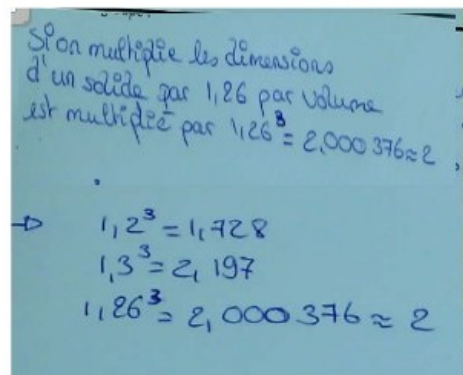 Si on multiplie les dimensions
d'un solide par 1,26 par volume
est multiplié par 1,26³ = 2,000 376 ≈ 2
→ 1,2³ = 1,728
1,3³ = 2,197
1,26³ = 2,000 376 ≈ 2